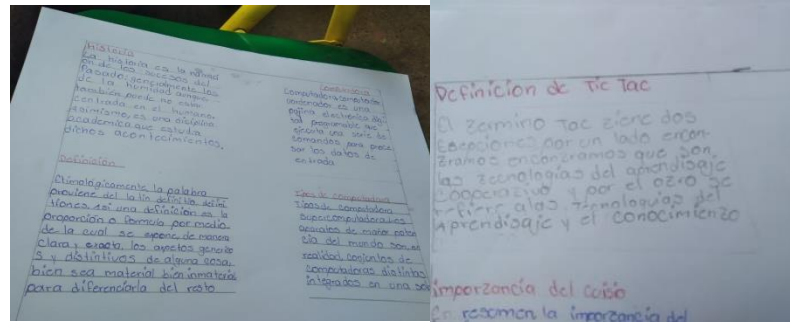 Historia
La historia es la narraci
ón de los sucesos del
Pasado, generalmente los
de la humidad aunque
también puede no estar
centrada en el humano.
Asimismo, es una diciplina
academica que estudia
dichos acontecimientos.
Definición
Etimologicamente la palabra
proviene del latin definitio, defini
tiones. así una definición es la
proposición o formula por medio
de la cual se expone de manera
clara y exacta, los aspetos generale
s y distintivos de alguna cosa,
bien sea material bien inmaterial
para diferenciarla del resto
Computadora
ordenador es una
electronica dig
ital programable que
ejecuta una serie de
comandos para proce
sar los datos de
entrada
Tipos de computadora
Tipos de computadora
Supercomputadoras
de mayor poten
cia del mundo son en
realidad, conjuntos de
computadoras distintas
integrados en una sola
Definición de Tic Tac
El termino Tac tiene dos
por un lado encon
tramos encontramos que son
las tecnologías del aprendisaje
cooperativo y por el otro se
refiere alas Tecnologias del
Aprendisaje y el conocimiento
importancia del
En resomen la importancia del